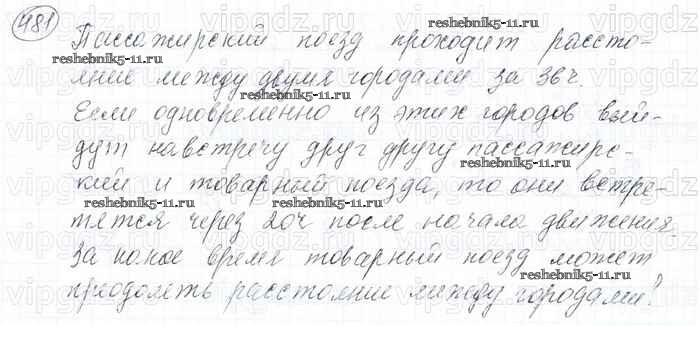 481
Пассажирский поезд проходит рассто-
яние между двумя городами за 36ч.
Если одновременно из этих городов вый-
дут навстречу друг другу пассажирс-
кий и товарный поезда, то они встре-
тятся через 20ч после начала движения.
За какое время товарный поезд может
преодолеть расстояние между городами?
reshebnik5-11.ru
reshebnik5-11.ru
reshebnik5-11.ru
reshebnik5-11.ru
reshebnik5-11.ru
reshebnik5-11.ru
reshebnik5-11.ru